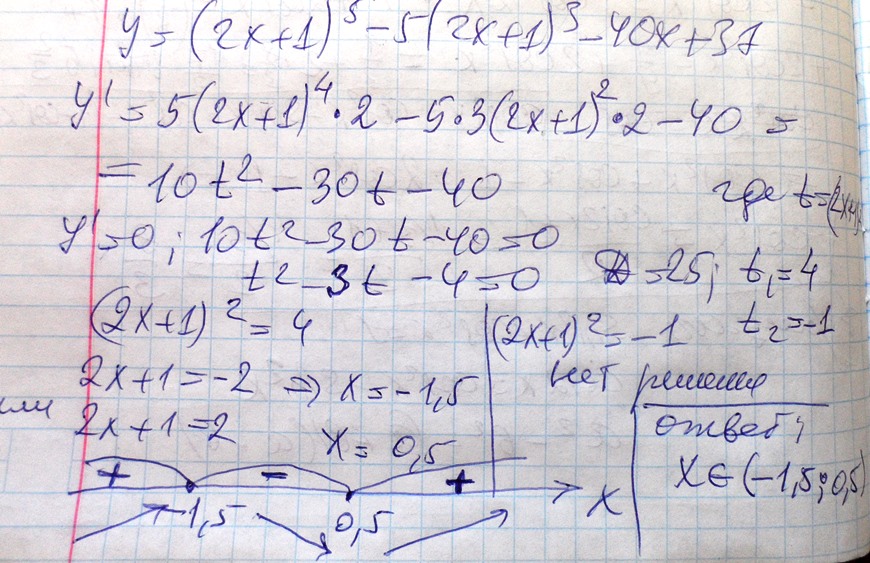 y = (2x+1)⁵ - 5(2x+1)³ - 40x + 37
y' = 5(2x+1)⁴ · 2 - 5·3(2x+1)² · 2 - 40 =
= 10t² - 30t - 40 где t = (2x+1)²
y' = 0 ; 10t² - 30t - 40 = 0
t² - 3t - 4 = 0 D = 25; t₁ = 4
(2x+1)² = 4 (2x+1)² = -1 t₂ = -1
2x+1 = -2 ⇒ x = -1,5 нет решения
или 2x+1 = 2 x = 0,5 ответ:
+ - + x x ∈ (-1,5; 0,5)
-1,5 0,5